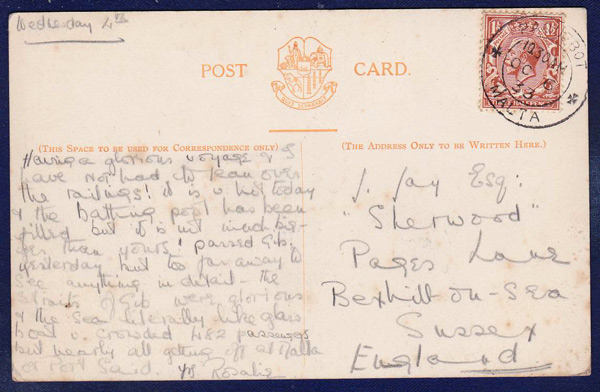 Wednesday 4th
POST CARD.
1½ 1½
PAQUEBOT
10 30 AM
OC 6
33
MALTA
(THIS SPACE TO BE USED FOR CORRESPONDENCE ONLY)
Having a glorious voyage & I
have not had to lean over
the railings! it is v hot today
& the Bathing pool has been
filled but it is not much big-
ger than yours! passed Gib.
yesterday but too far away to
see anything in detail - the
Straits of Gib were glorious
& the sea literally like glass
boat v. crowded 482 passengers
but nearly all getting off at Malta
or Port Said. Yrs Rosalie
(THE ADDRESS ONLY TO BE WRITTEN HERE.)
J. Jay Esq:
"Sherwood"
Pages Lane
Bexhill-on-Sea
Sussex
England